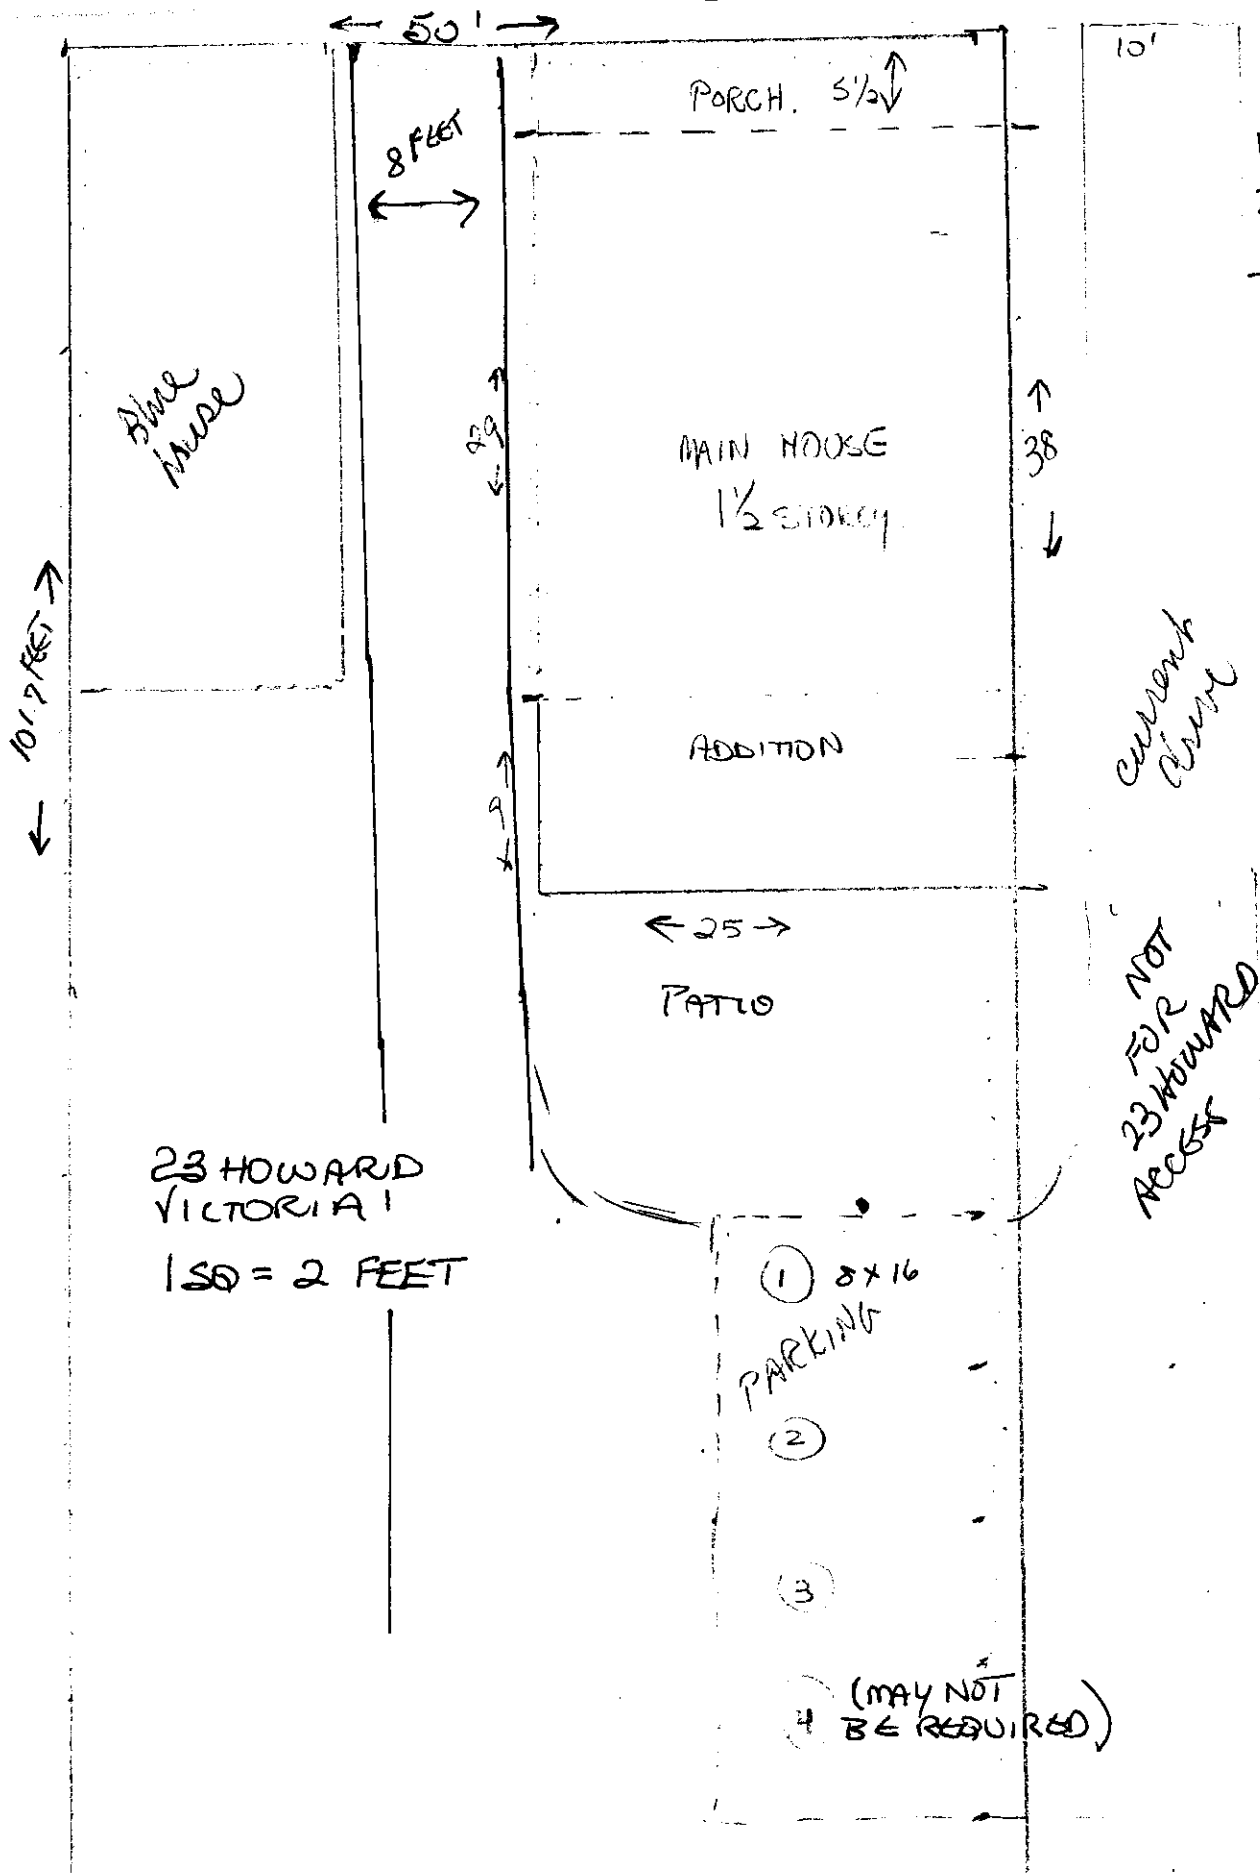 50'
10'
PORCH. 5½
8 FEET
Blue
house
29
MAIN HOUSE
1½ STOREY
38
101.7 FEET
current
drive
ADDITION
9
25
PATIO
NOT
FOR
23 HOWARD
ACCESS
23 HOWARD
VICTORIA
1 SQ = 2 FEET
1 8 x 16
PARKING
2
3
4 (MAY NOT
BE REQUIRED)